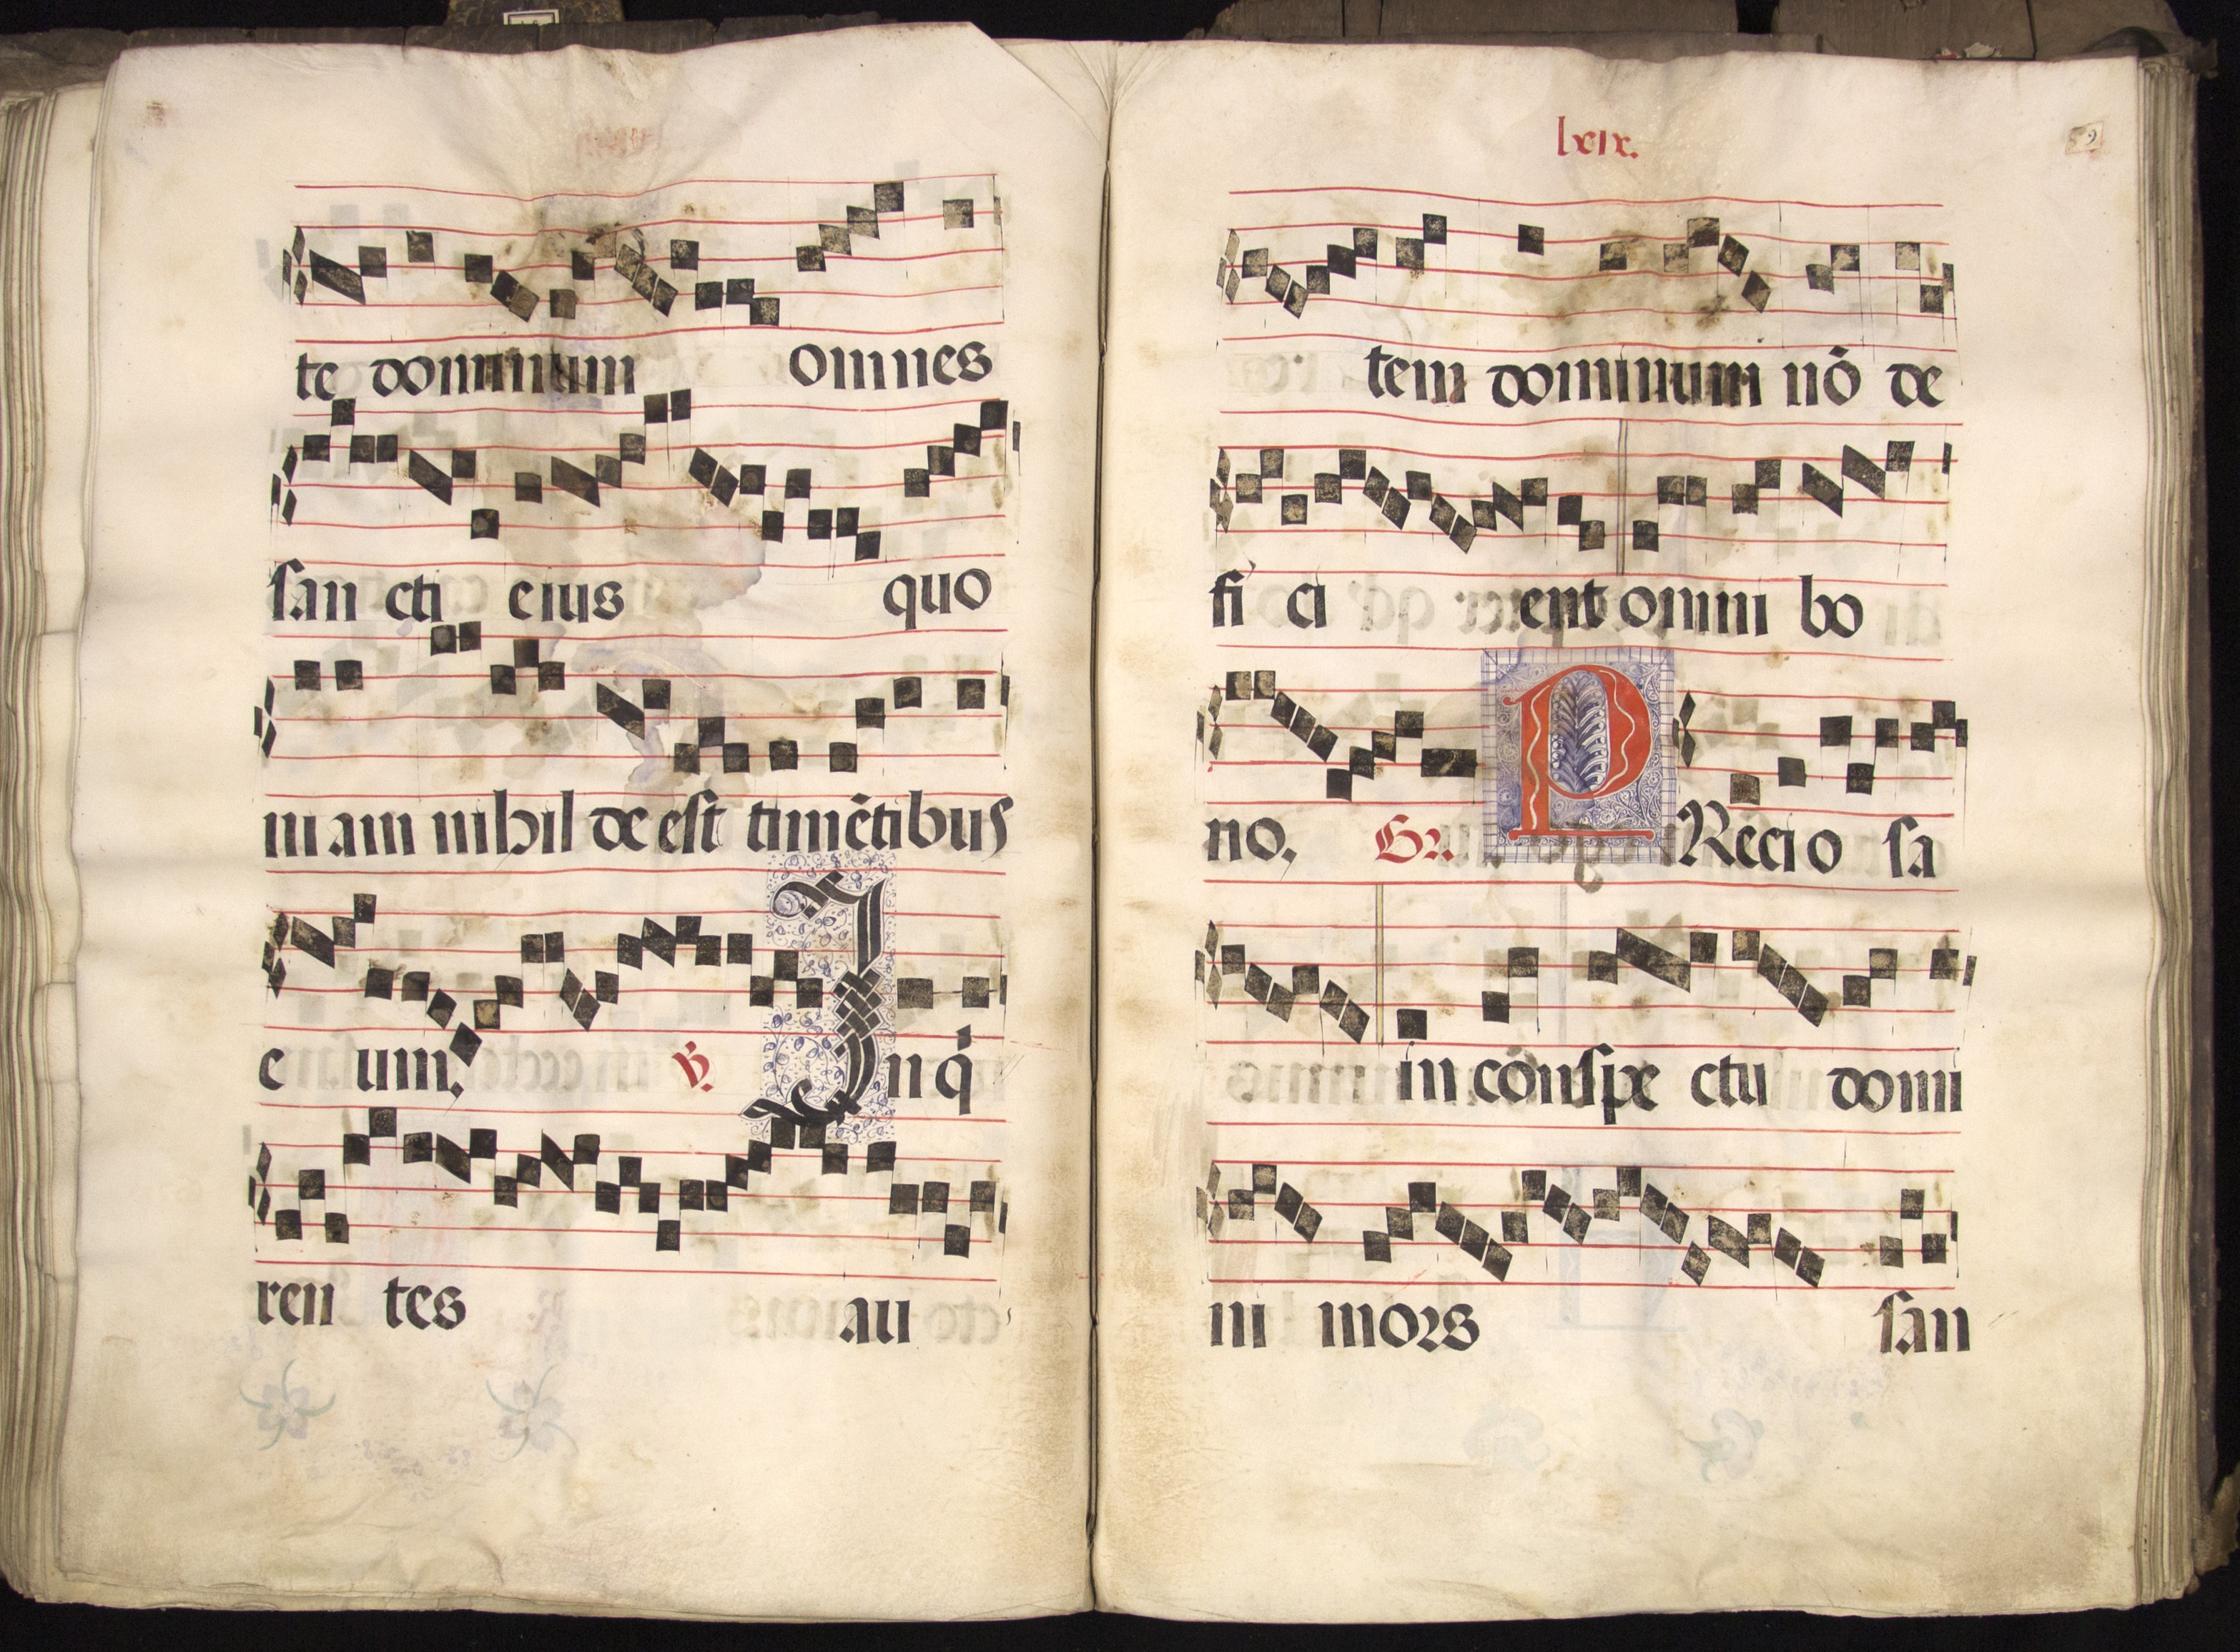 te dominum omnes
san cti eius quo
ni am nihil de est timētibus
e um. ℣. Inq̄
ren tes au
lxix.
tem dominum nō de
fi ci ent omni bo
no, Gr. PRecio sa
in conspe ctu domi
ni mors san